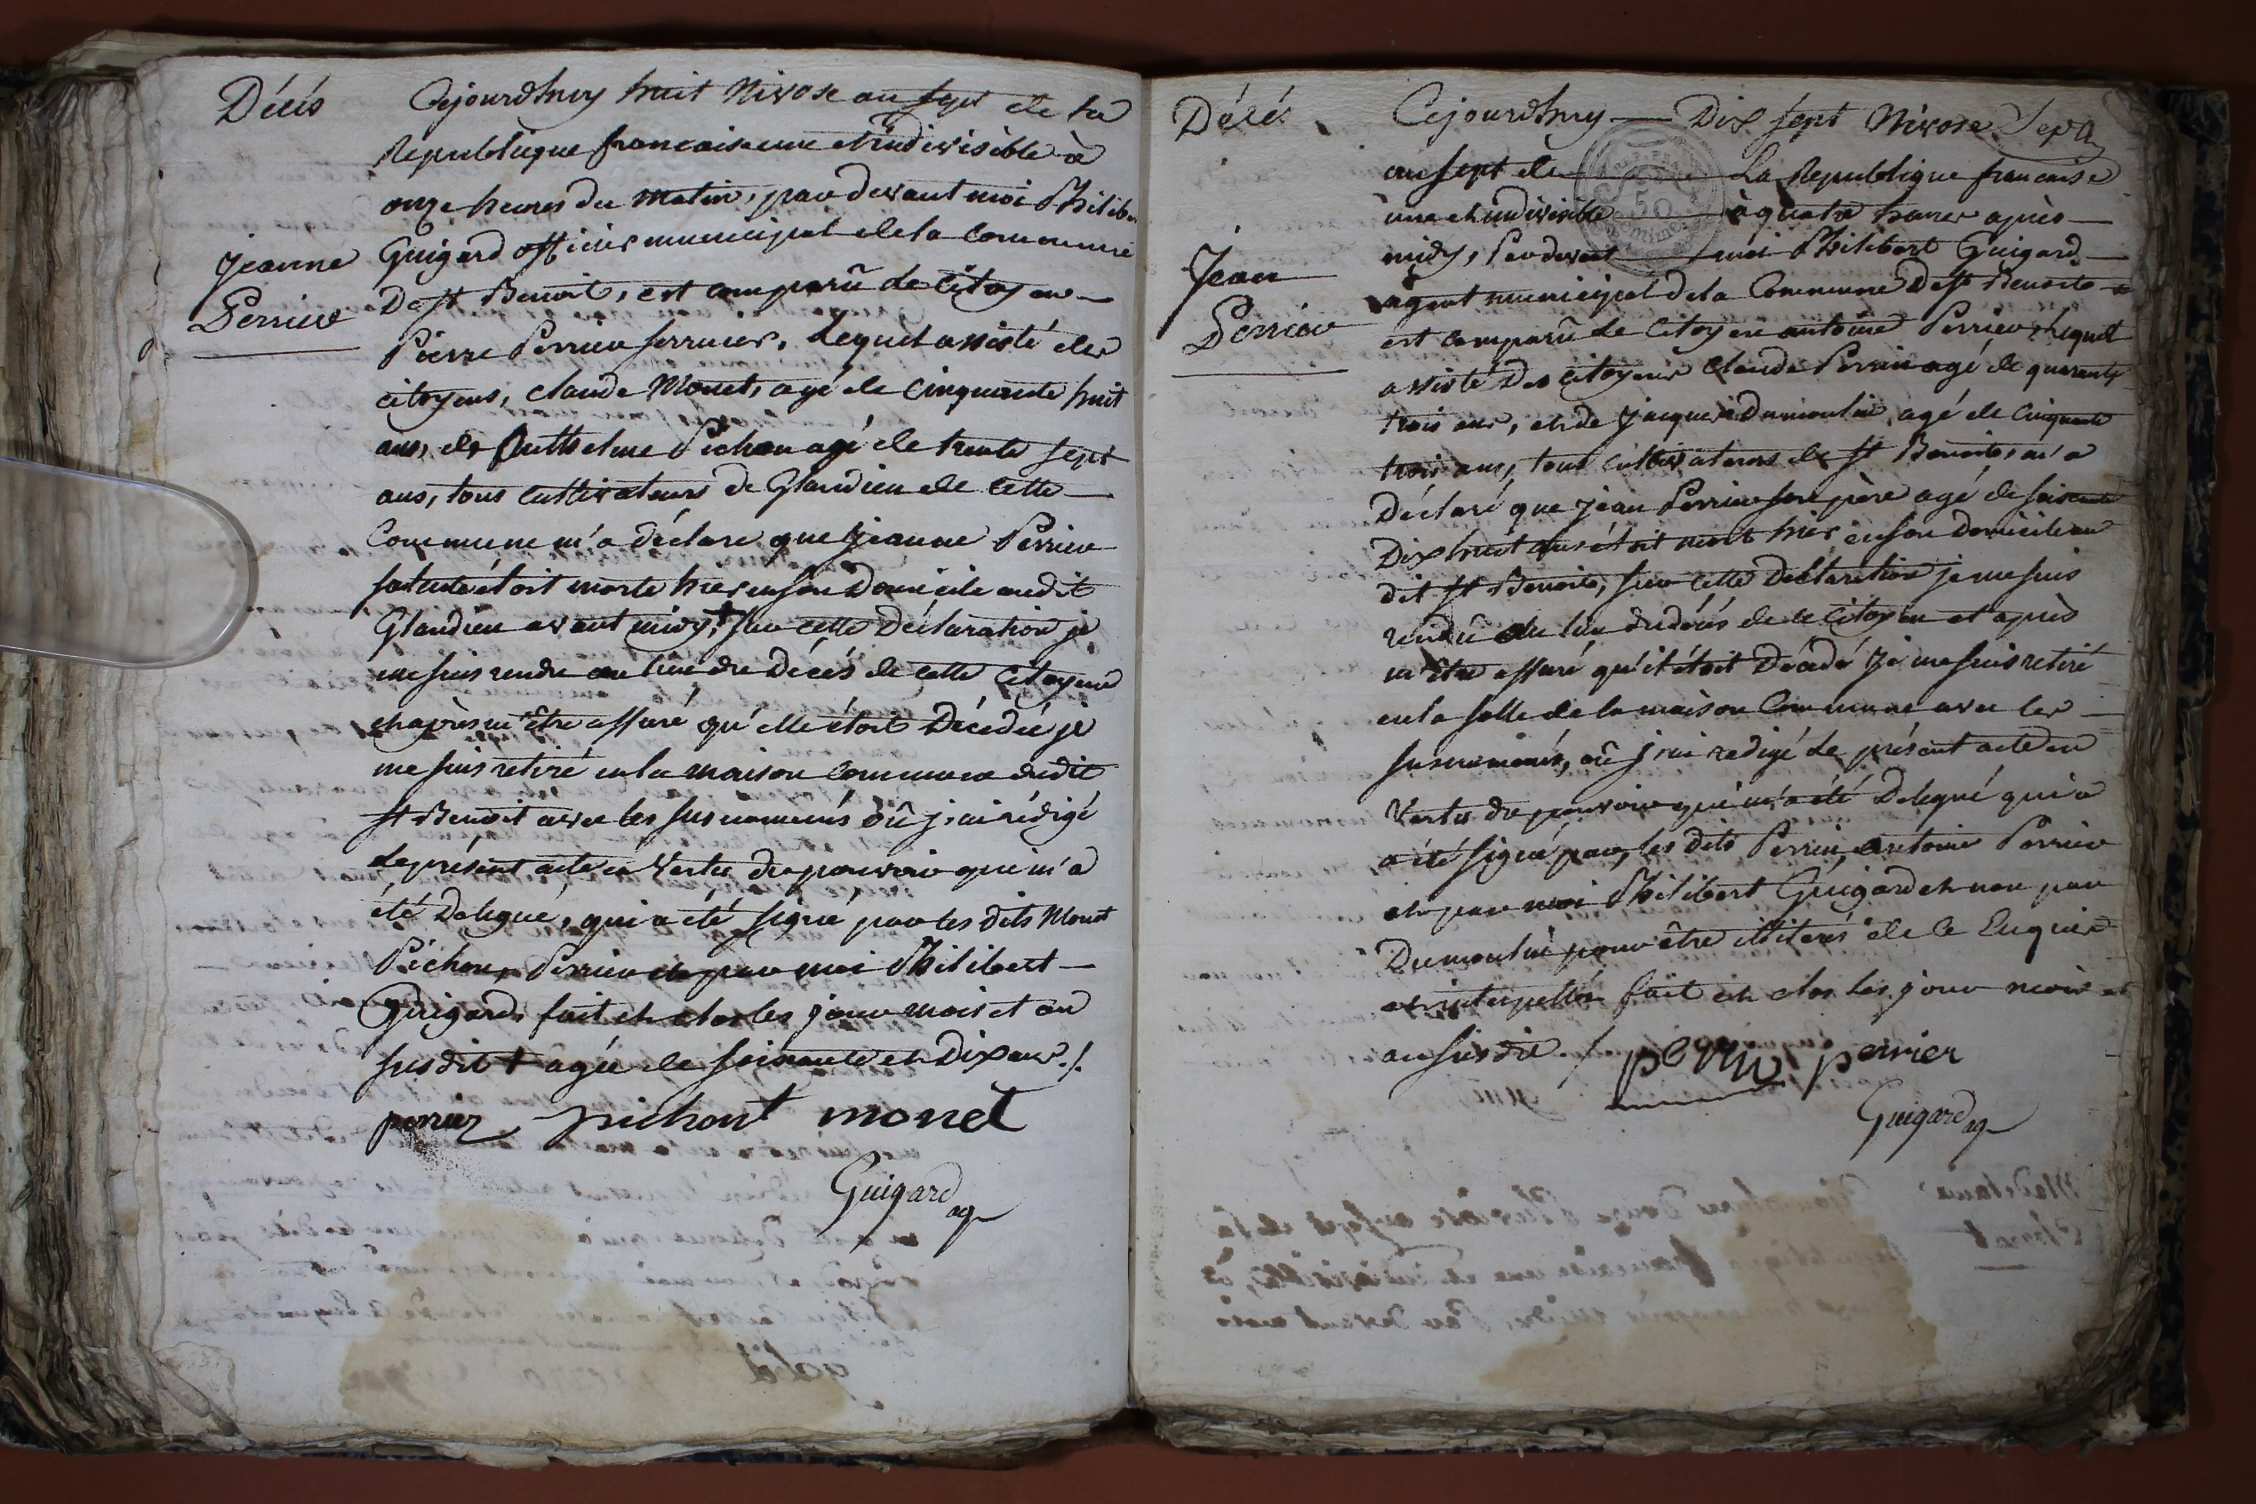 Décés
Jeanne
Perrier
Cejourdhuy huit Nivose an sept de la
Republique francaise une et indivisible à
onze heures du matin, par devant moi Philib
Guigard officier municipal de la Commune
De st Benoit, est comparû le Citoyen
Pierre Perrier serrurier, lequel assisté des
citoyens, claude Monet, agé de cinquante huit
ans, et Anthelme Pichon agé de trente sept
ans, tous cultivateurs de Glandieu de cette
Commune m'a déclaré que Jeanne Perrier
sa tante étoit morte hier en son Domicile audit
Glandieu avant midy,+ sur cette Déclaration je
me suis rendu au lieu du Décés de cette Citoyene
et après m'être assuré qu'elle étoit Décédée je
me suis retiré en la maison commune dudit
st Benoit avec les susnommés oû j'ai rédigé
le présent acte en Vertu du pouvoir qui m'a
été Delegué, qui a été signé par les dits Monet
Pichon, Perrier et par moi Philibert
Guigard, fait et clos les jour mois et an
susdit + agée de soixante et Dix ans ./.
perrier pichont monet
Guigard ag
Décés
Jean
Perrier
Cejourdhuy Dix sept Nivose
an sept de La Republique francaise
une et indivisible à quatre heures après
midy, Pardevant moi Philibert Guigard
agent municipal de la Commune De st Benoit
est comparû le Citoyen antoine Perrier, lequel
assisté des citoyens Claude Perrin agé de quarante
trois ans, et de Jacques Dumoulin agé de cinquante
trois ans, tous cultivateurs de st Benoit, m'a
Déclaré que Jean Perrier son père agé de soixante
Dix huit ans étoit mort hier en son Domicile au
dit st Benoit, sur cette Déclaration je me suis
rendû au lieu du décés de ce Citoyen et après
m'être assuré qu'il étoit Décédé Je me suis retiré
en la salle de la maison Commune avec les
susnommés, oû j'ai redigé le présent acte en
Vertu du pouvoir qui m'a été Delegué qui a
a été signé par, les dits Perrin, antoine Perrier
et par moi Philibert Guigard et non par
Dumoulin pour être illiterés de ce Enquis
et interpellés fait et clos les jour mois et
an susdit ./.
perrin perrier
Guigard ag
50